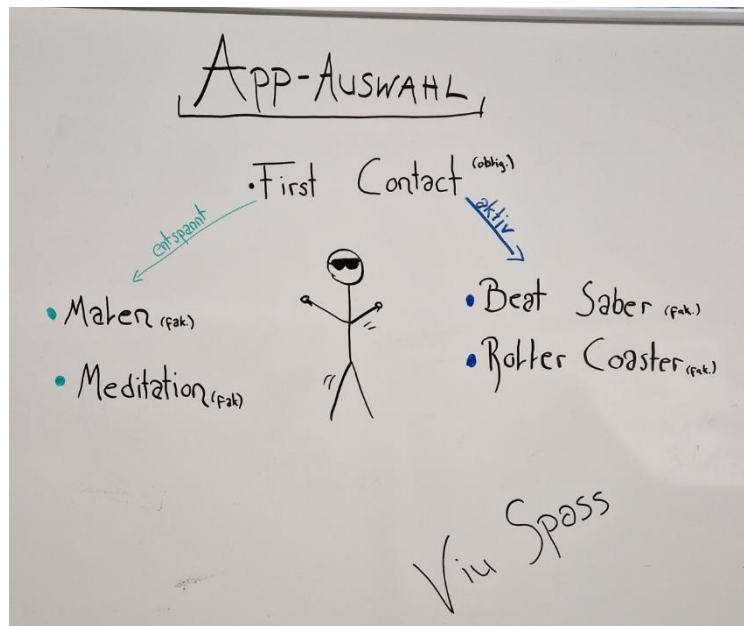 APP-AUSWAHL
• First Contact (oblig.)
entspannt
aktiv
• Malen (fak.)
• Meditation (fak)
• Beat Saber (fak.)
• Roller Coaster (fak.)
Viu Spass